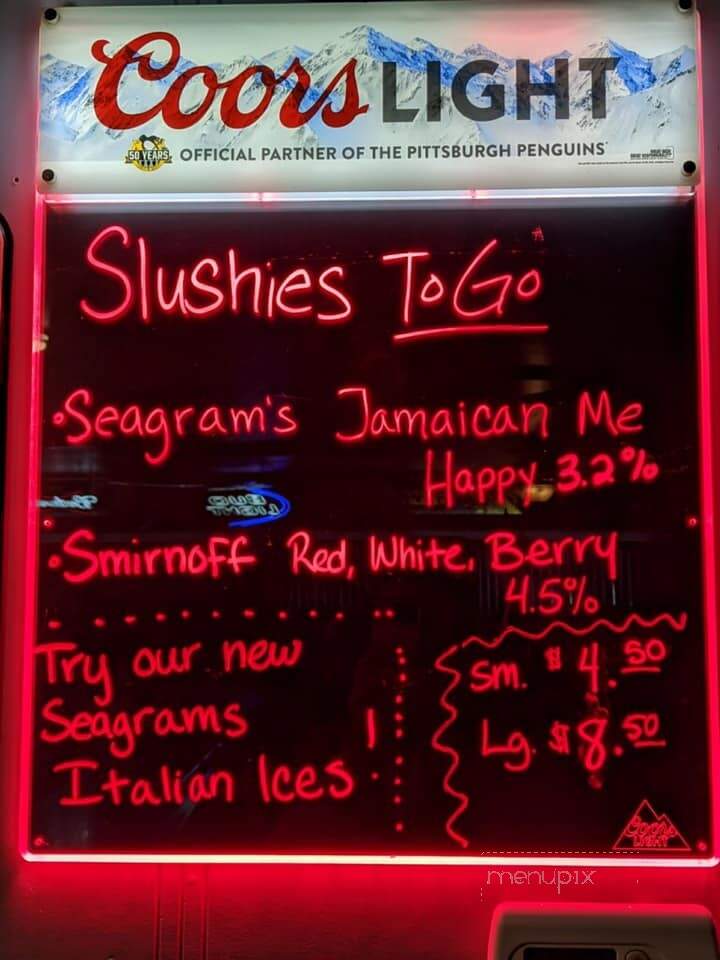 Coors LIGHT
50 YEARS
OFFICIAL PARTNER OF THE PITTSBURGH PENGUINS
Slushies To Go
·Seagram's Jamaican Me
Happy 3.2%
BUD
LIGHT
·Smirnoff Red, White, Berry
4.5%
Try our new
Seagrams
Italian Ices!
Sm. $4.50
Lg. $8.50
Coors
LIGHT
menupix